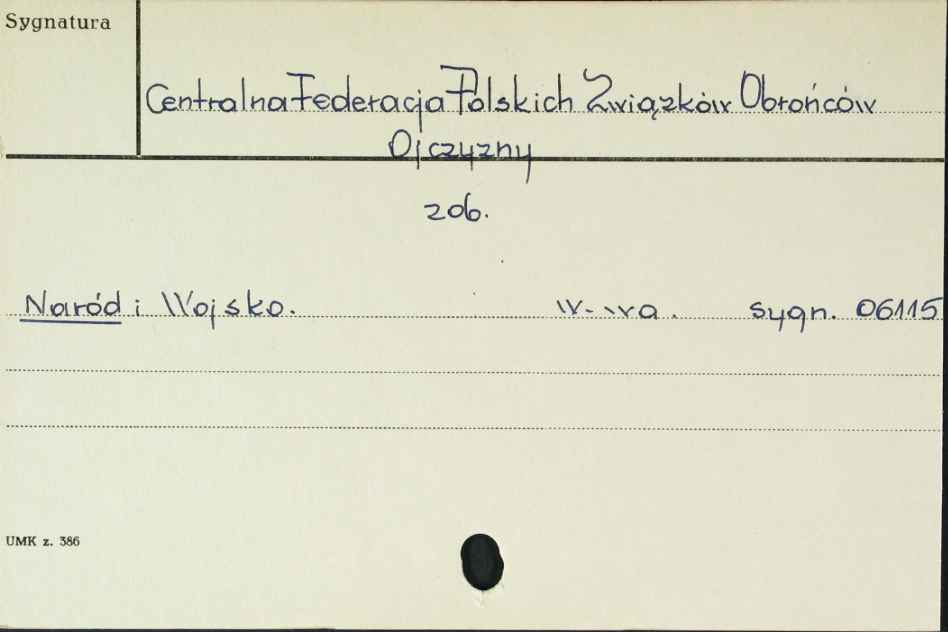 Sygnatura
Centralna Federacja Polskich Związków Obrońców
Ojczyzny
206.
Naród i Wojsko. W-wa. sygn. 06115
UMK z. 386